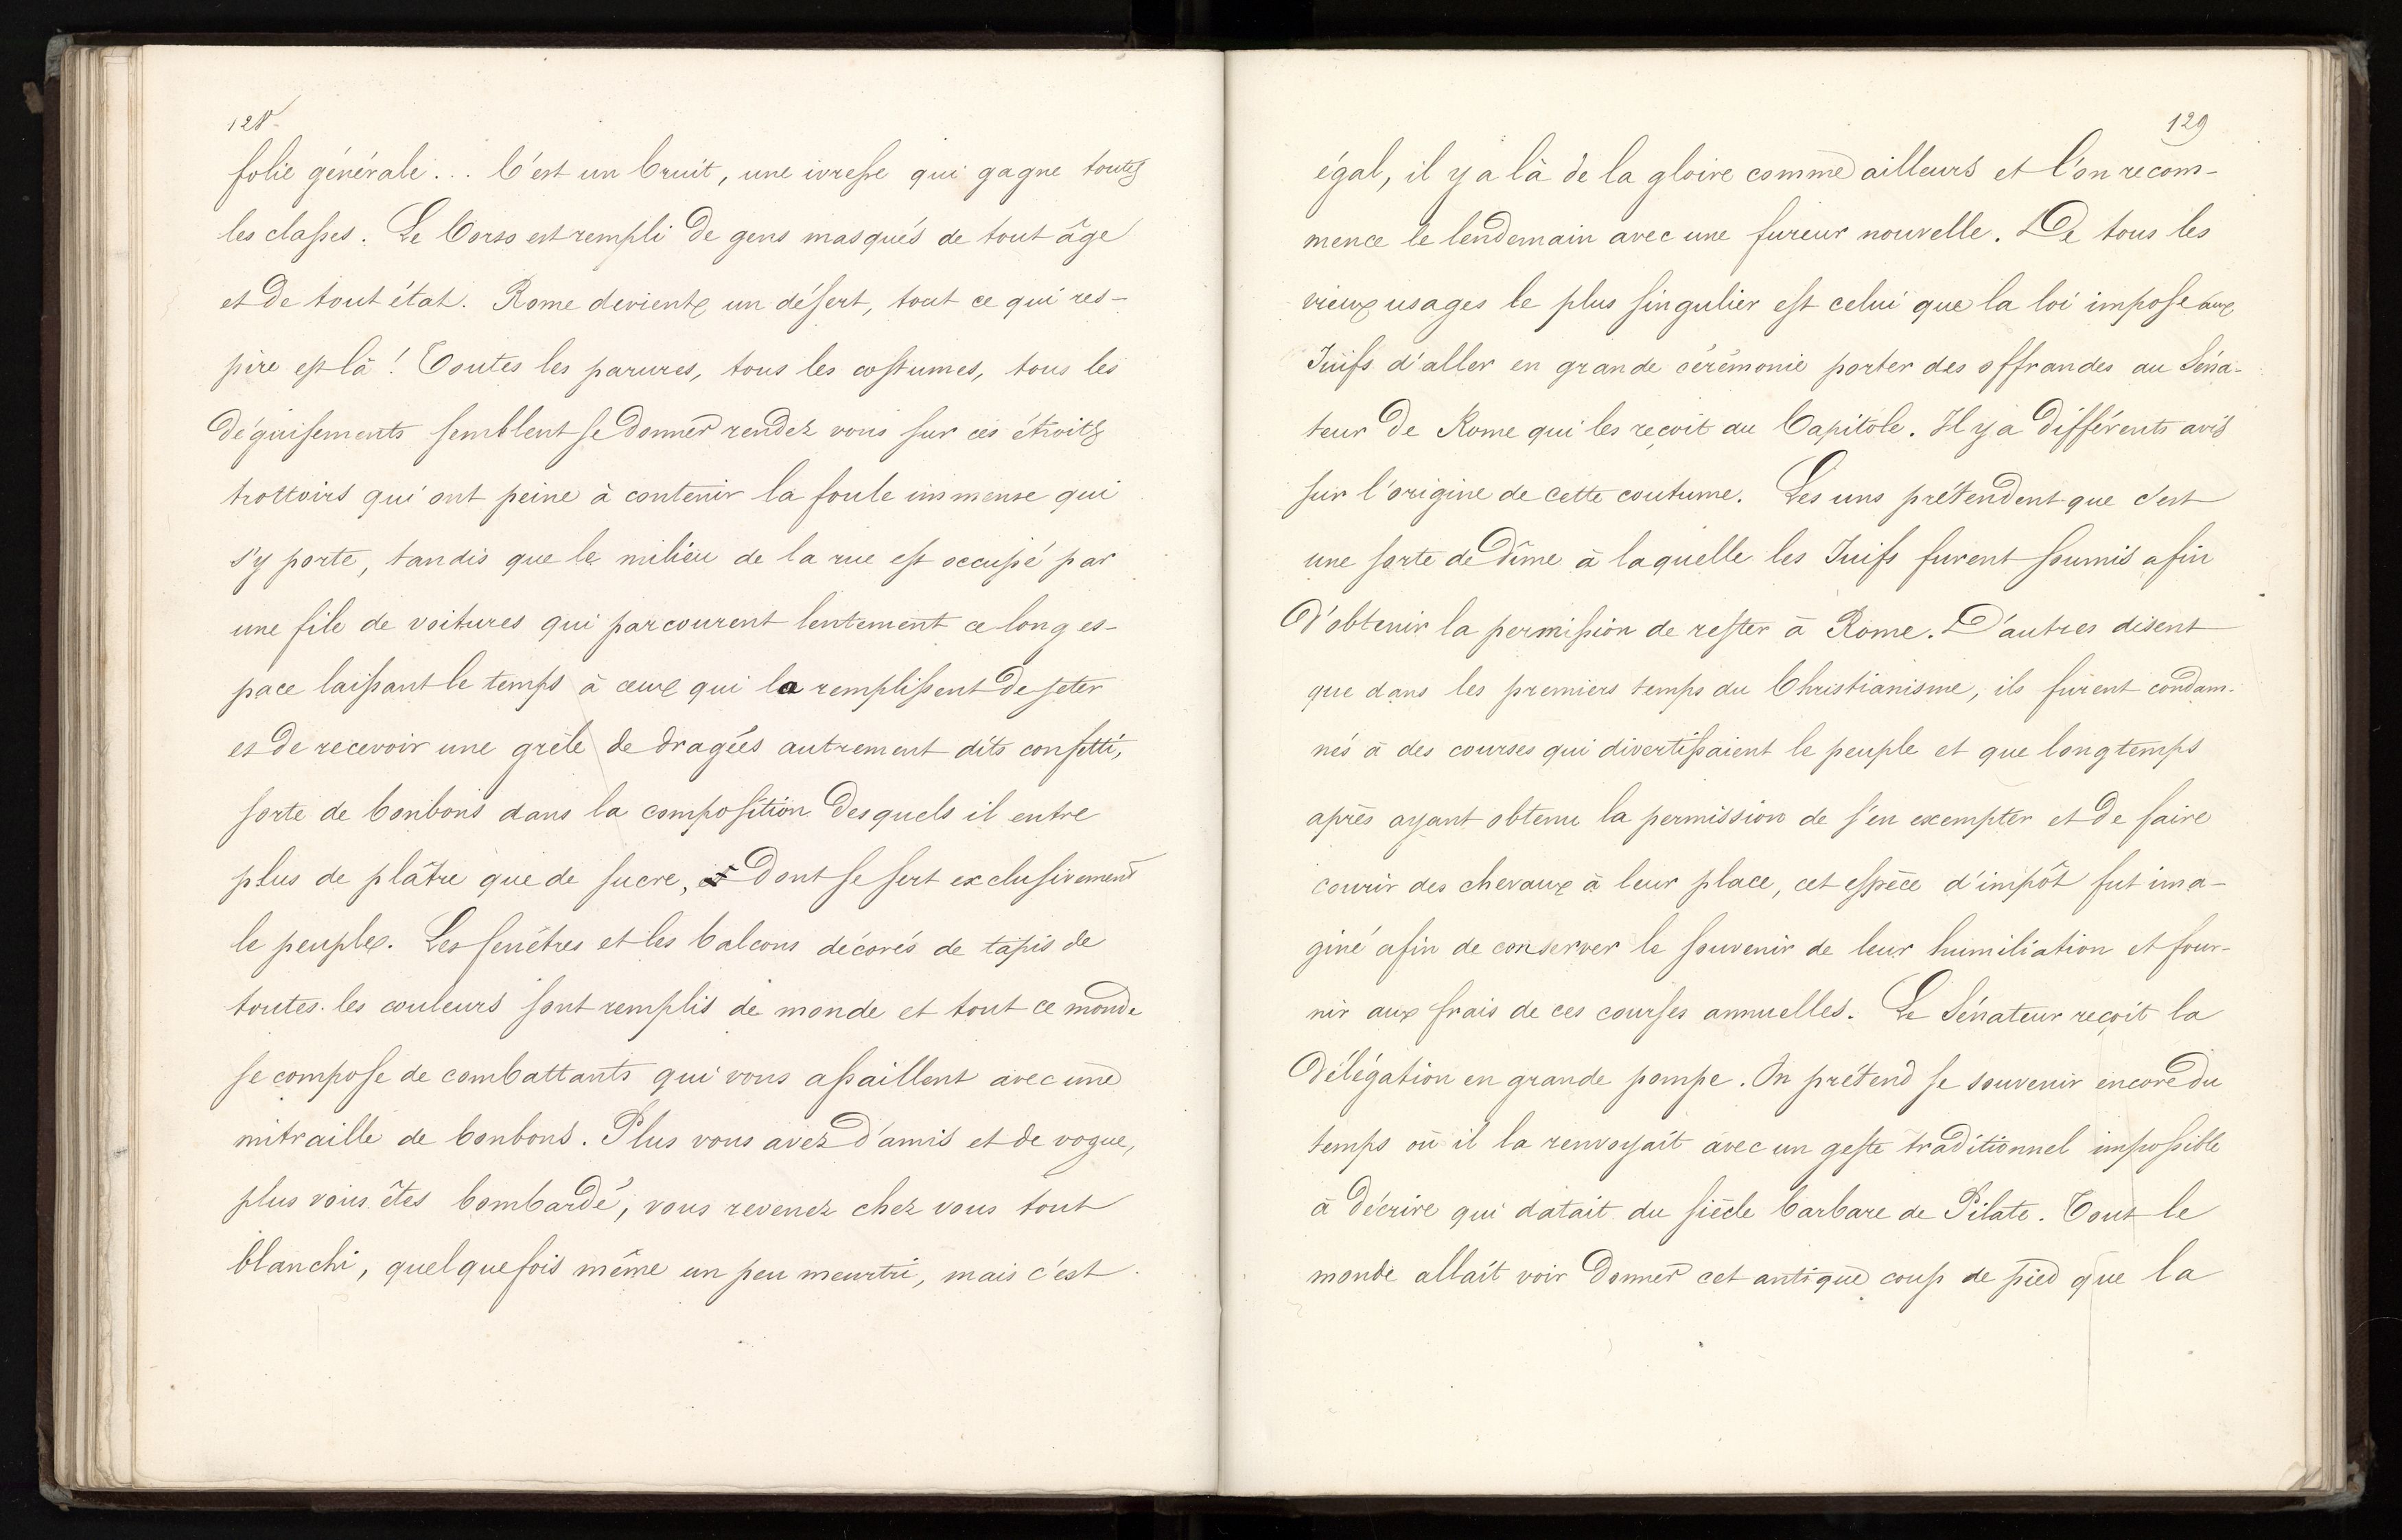 128
folie générale... C'est un bruit, une ivresse qui gagne toutes
les classes. Le Corso est rempli de gens masqués de tout âge
et de tout état. Rome devient un désert, tout ce qui res-
pire est là! Toutes les parures, tous les costumes, tous les
déguisements semblent se donner rendez vous sur ces étroits
trottoirs qui ont peine à contenir la foule immense qui
s'y porte, tandis que le milieu de la rue est occupé par
une file de voitures qui parcourent lentement ce long es-
pace laissant le temps à ceux qui la remplissent de jeter
et de recevoir une grèle de dragées autrement dits confetti,
sorte de bonbons dans la composition desquels il entre
plus de plâtre que de sucre, et dont se sert exclusivement
le peuple. Les fenêtres et les balcons décorés de tapis de
toutes les couleurs sont remplis de monde et tout ce monde
se compose de combattants qui vous assaillent avec une
mitraille de bonbons. Plus vous avez d'amis et de vogue,
plus vous êtes bombardé, vous revenez chez vous tout
blanchi, quelquefois même un peu meurtri, mais c'est
129
égal, il y a là de la gloire comme ailleurs et l'on recom-
mence le lendemain avec une fureur nouvelle. De tous les
vieux usages le plus singulier est celui que la loi impose aux
Juifs d'aller en grande cérémonie porter des offrandes au Séna-
teur de Rome qui les reçoit au Capitole. Il y a différents avis
sur l'origine de cette coutume. Les uns prétendent que c'est
une sorte de dîme à laquelle les Juifs furent soumis afin
d'obtenir la permission de rester à Rome. D'autres disent
que dans les premiers temps du Christianisme, ils furent condam-
nés à des courses qui divertissaient le peuple et que longtemps
après ayant obtenu la permission de s'en exempter et de faire
courir des chevaux à leur place, cet espèce d'impôt fut ima-
giné afin de conserver le souvenir de leur humiliation et four-
nir aux frais de ces courses annuelles. Le Sénateur reçoit la
délégation en grande pompe. On prétend se souvenir encore du
temps où il la renvoyait avec un geste traditionnel impossible
à décrire qui datait du siècle barbare de Pilate. Tout le
monde allait voir donner cet antique coup de pied que la